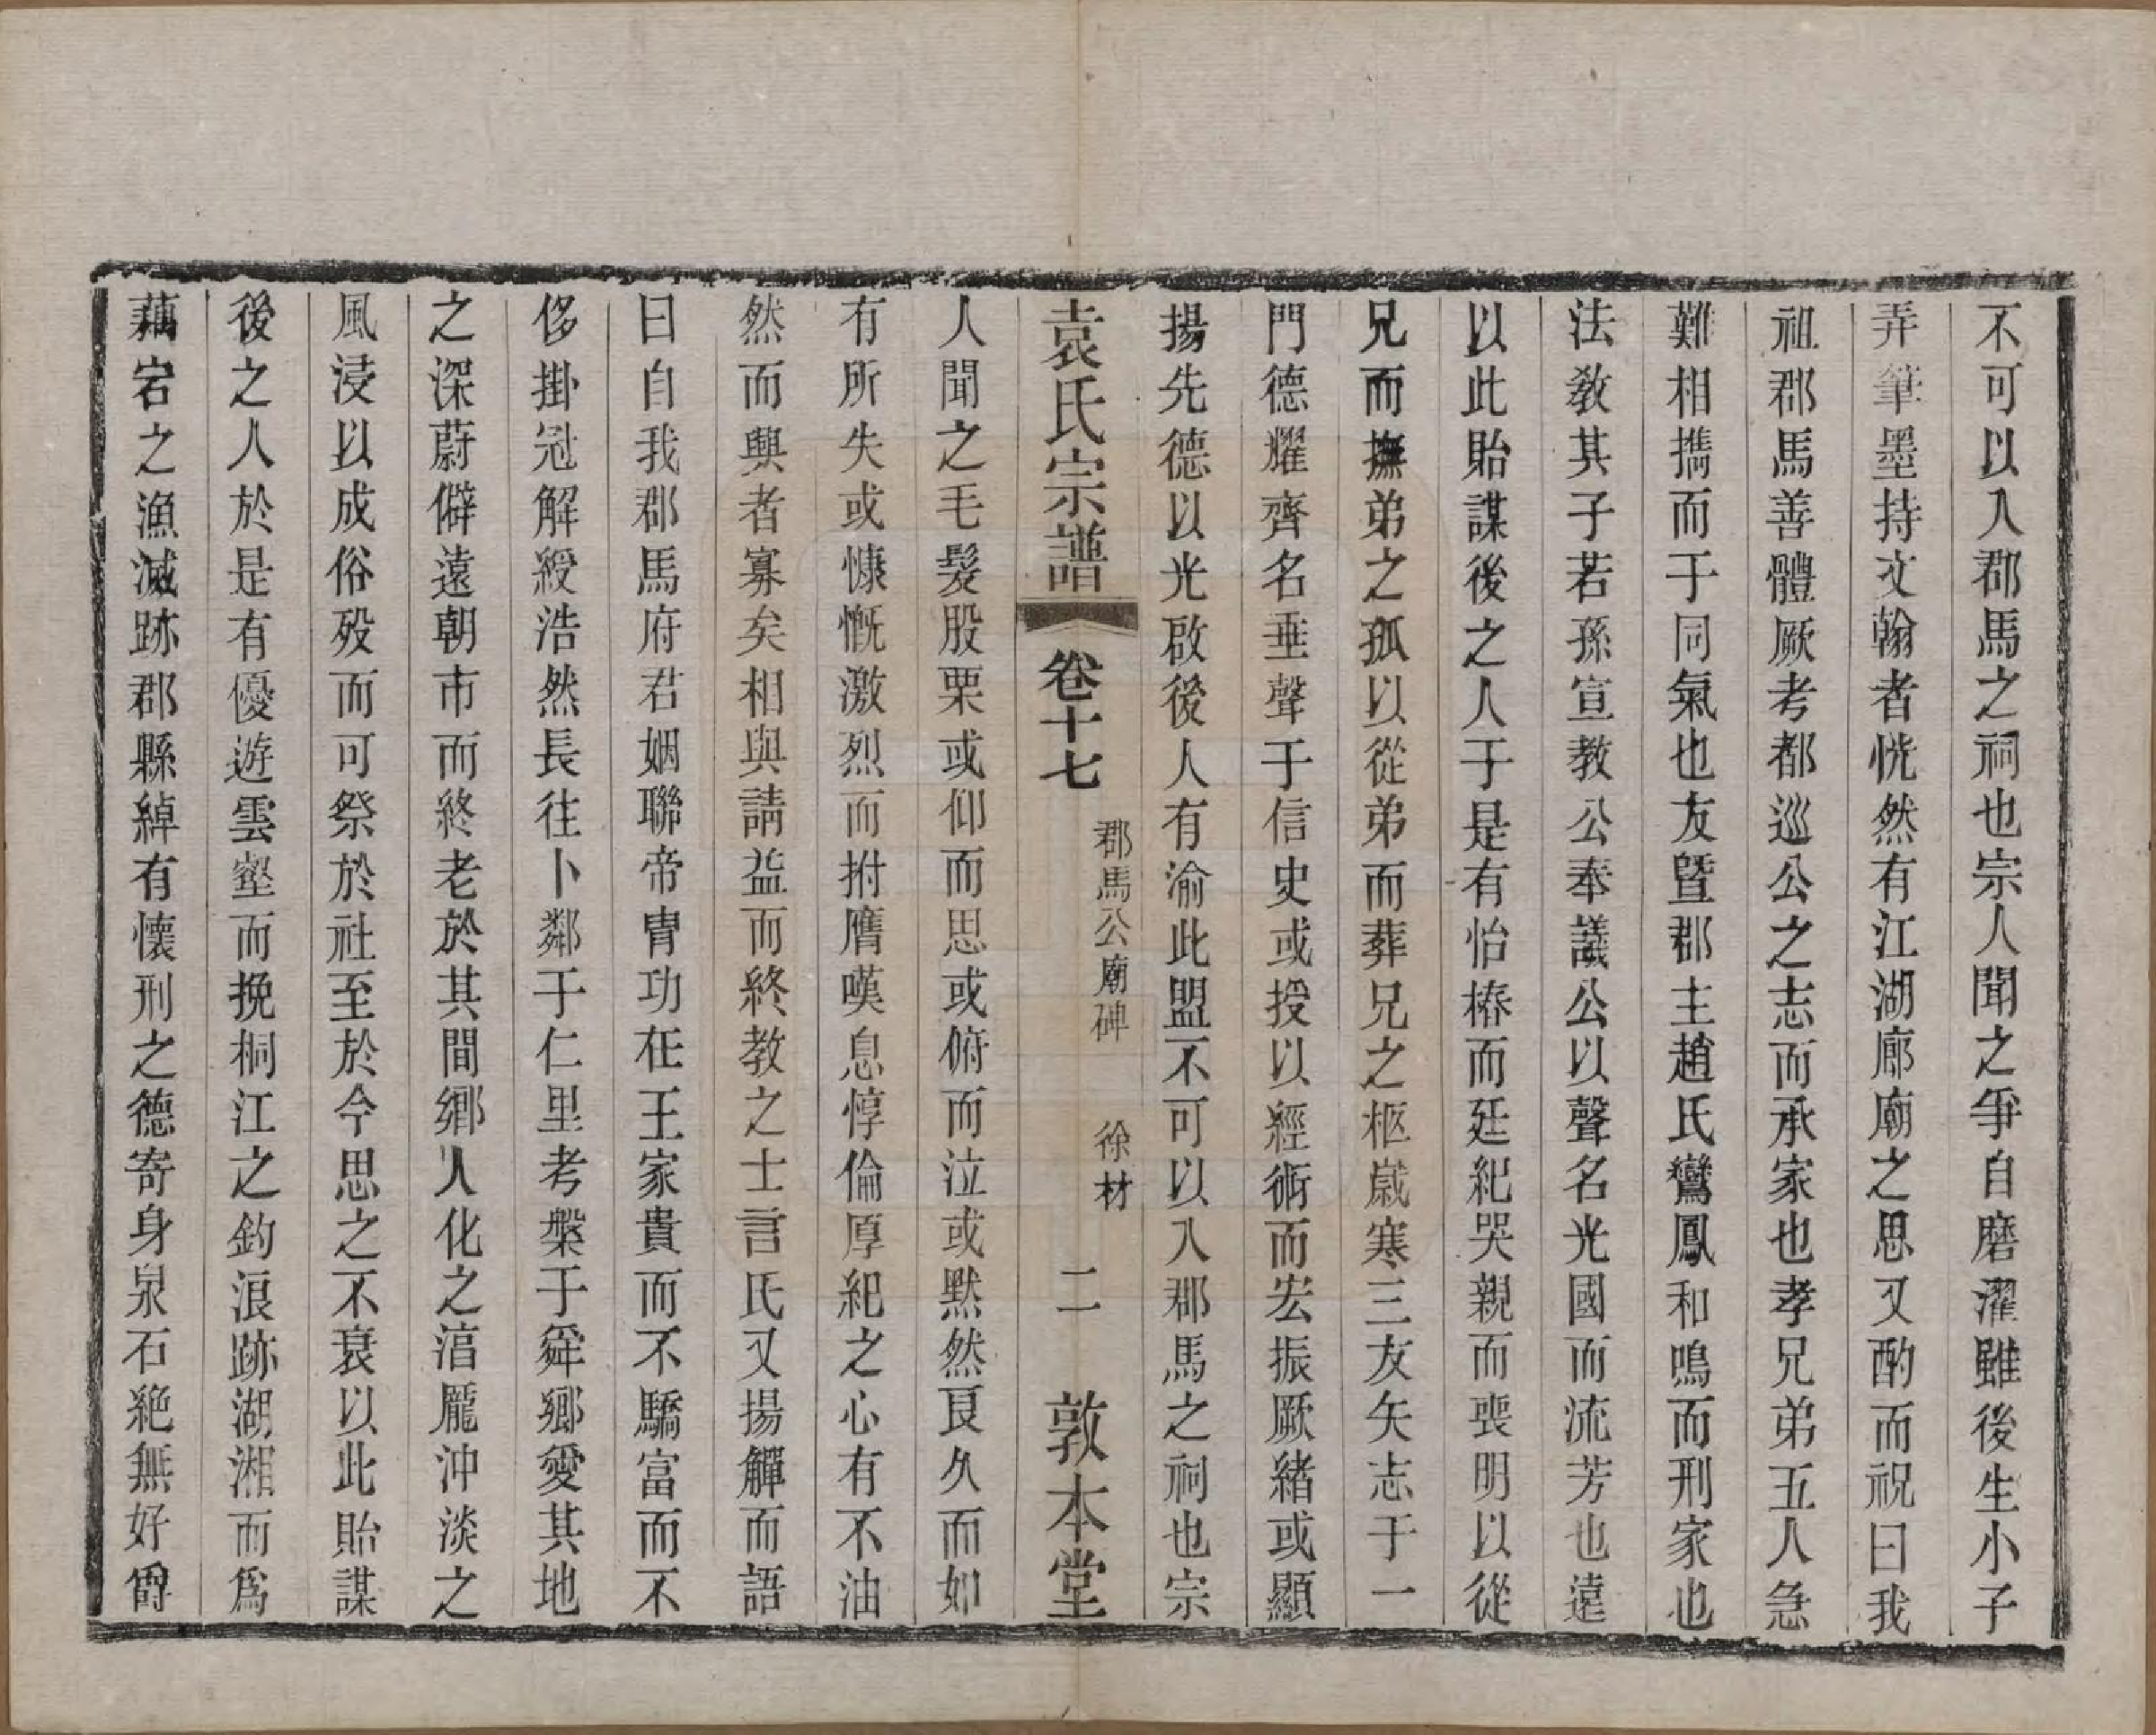 不可以入郡馬之祠也宗人聞之爭自磨濯雖後生小子
弄筆墨持文翰者恍然有江湖廊廟之思又酌而祝曰我
祖郡馬善體厥考都巡公之志而承家也孝兄弟五人急
難相携而于同氣也友曁郡主趙氏鸞鳳和鳴而刑家也
法教其子若孫宣教公奉議公以聲名光國而流芳也遠
以此貽謀後之人于是有怡椿而廷紀哭親而喪明以從
兄而撫弟之孤以從弟而葬兄之柩嵗寒三友矢志于一
門德耀齊名垂聲于信史或授以經術而宏振厥緒或顯
揚先德以光啟後人有渝此盟不可以入郡馬之祠也宗
袁氏宗譜 卷十七 郡馬公廟碑 徐材 二 敦本堂
人聞之毛髮股栗或仰而思或俯而泣或默然良久而如
有所失或慷慨激烈而拊膺嘆息惇倫厚紀之心有不油
然而興者寡矣相與請益而終教之士言氏又揚觶而語
曰自我郡馬府君姻聯帝胄功在王家貴而不驕富而不
侈掛冠解綬浩然長往卜鄰于仁里考槃于舜鄉愛其地
之深蔚僻遠朝市而終老於其間鄉人化之湻龎沖淡之
風浸以成俗歿而可祭於社至於今思之不衰以此貽謀
後之人於是有優遊雲壑而挽桐江之釣浪跡湖湘而爲
藕宕之漁滅跡郡縣綽有懷刑之德寄身泉石絶無好爵